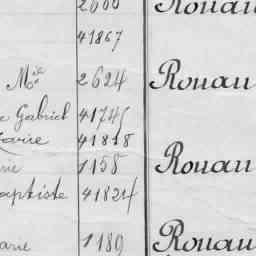 2600 Rouau
41867
Me 2624 Rouau
e Gabriel 41745
Marie 41818
rie 1158 Rouau
aptiste 41824
arie 1189 Rouau